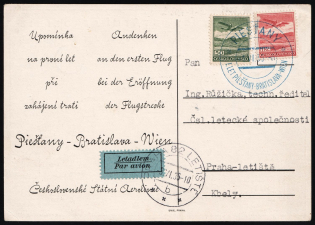 Upomínka
na první let
při
zahájení trati
Andenken
an den ersten Flug
bei der Eröffnung
der Flugstrecke
Piešťany - Bratislava - Wien
Letadlem
Par avion
Československé Státní Aerolinie
PIEŠŤANY
LET PIEŠŤANY-BRATISLAVA-WIEN
Pan
Ing. Růžička, techn. ředitel
Čsl. letecké společnosti
Praha-letiště
Kbely.
LETIŠTĚ
b